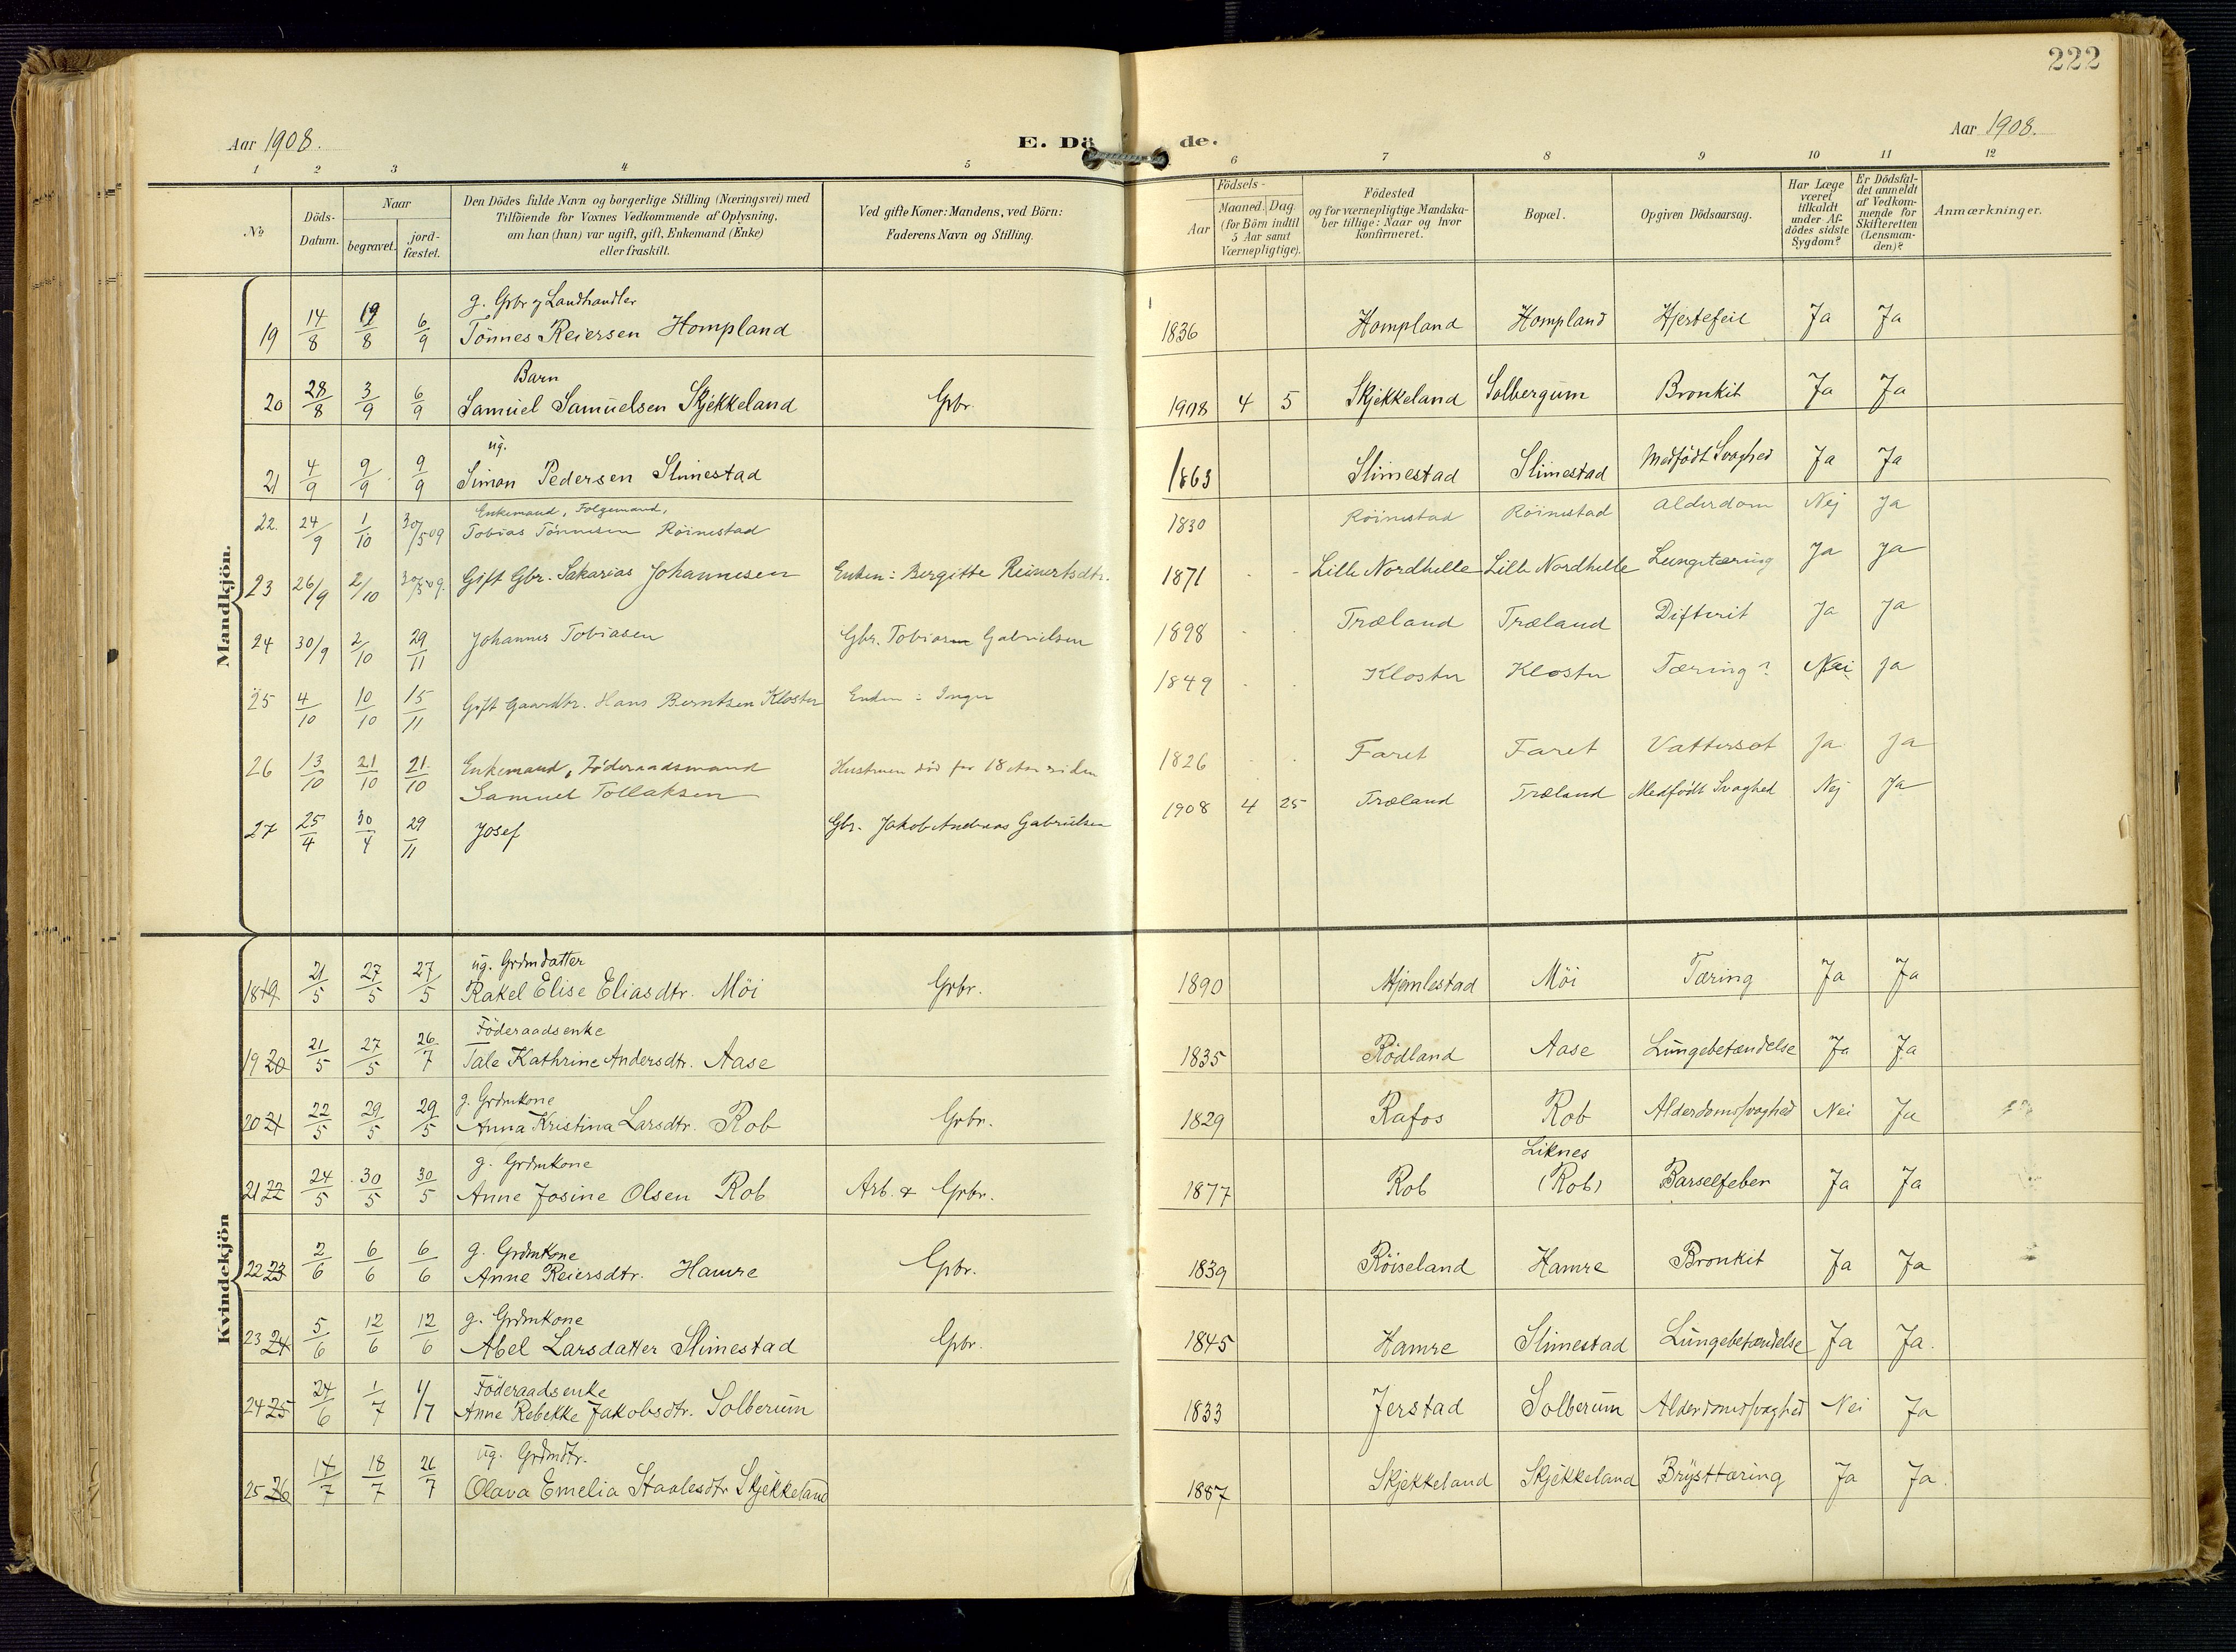 222
Aar 1908.
E. Dö de.
Aar 1908.
1 2 3 4 5 6 7 8 9 10 11 12
No
Döds-Datum.
Naar
begravet.
jord-fæstet.
Den Dödes fulde Navn og borgerlige Stilling (Næringsvei) med
Tilföiende for Voxnes Vedkommende af Oplysning,
om han (hun) var ugift, gift, Enkemand (Enke)
eller fraskilt.
Ved gifte Koner: Mandens, ved Börn:
Faderens Navn og Stilling.
Födsels-
Aar
Maaned. Dag.
(for Börn indtil
5 Aar samt
Værnepligtige).
Födested
og for værnepligtige Mandska-
ber tillige: Naar og hvor
konfirmeret.
Bopæl.
Opgiven Dödsaarsag.
Har Læge
været
tilkaldt
under Af-
dödes sidste
Sygdom?
Er Dödsfal-
det anmeldt
af Vedkom-
mende for
Skifteretten
(Lensman-
den)?
Anmærkninger.
Mandkjön.
g. Gbr og Landhandler
19 14/8 19/8 6/9 Tönnes Reiersen Hompland 1836 Hompland Hompland Hjertefeil Ja Ja
Barn
20 28/8 3/9 6/9 Samuel Samuelsen Skjekkeland Gbr. 1908 4 5 Skjekkeland Solbergum Bronkit Ja Ja
ug.
21 4/9 9/9 9/9 Simon Pedersen Slimestad 1863 Slimestad Slimestad Medfödt Svaghed Ja Ja
Enkemand, Folgemand,
22. 24/9 1/10 30/5 09 Tobias Tönnesen Röinestad 1830 Röinestad Röinestad Alderdom Nej Ja
23 26/9 2/10 30/5 09. Gift Gbr. Sakarias Johannesen Enken: Bergitte Reinertsdtr. 1871 Lille Nordhelle Lille Nordhelle Lungetæring Ja Ja
24 30/9 2/10 29/11 Johannes Tobiasen Gbr. Tobias Gabrielsen 1898 Træland Træland Difterit Ja Ja
25 4/10 10/10 15/11 Gift Gaardbr. Hans Berntsen Kloster Enken: Inger 1849 Kloster Kloster Tæring? Nei Ja
26 13/10 21/10 21./10 Enkemand, Föderaadsmand Hustruen död for 18 Aar siden 1826 Faret Faret Vattersot Ja Ja
Samuel Tollaksen
27 25/4 30/4 29/11 Josef Gbr. Jakob Andreas Gabrielsen 1908 4 25 Træland Træland Medfödt Svaghed Nej Ja
Kvindekjön
ug. Grdmdatter
18 19 21/5 27/5 27/5 Rakel Elise Eliasdtr. Möi Gbr. 1890 Mjemlestad Möi Tæring Ja Ja
Föderaadsenke
19 20 21/5 27/5 26/7 Tale Kathrine Andersdtr. Aase 1835 Rödland Aase Lungebetændelse Ja Ja
g. Grdmkone
20 21 22/5 29/5 29/5 Anna Kristina Larsdtr. Rob Gbr. 1829 Rafos Rob Alderdomssvaghed Nei Ja
g. Grdmkone Liknes
21 22 24/5 30/5 30/5 Anne Josine Olsen Rob Arb. & Gbr. 1877 Rob (Rob) Barselfeber Ja Ja
g. Grdmkone
22 23 2/6 6/6 6/6 Anne Reiersdtr. Hamre Gbr. 1839 Röiseland Hamre Bronkit Ja Ja
g. Grdmkone
23 24 5/6 12/6 12/6 Abel Larsdatter Slimestad Gbr. 1845 Hamre Slimestad Lungebetændelse Ja Ja.
Föderaadsenke
24 25 24/6 1/7 1/7 Anne Rebekke Jakobsdtr. Solberum 1833 Jerstad Solberum Alderdomssvaghed Nei Ja
ug. Grdmdtr.
25 26 14/7 18/7 26/7 Olava Emelia Staalesdtr Skjekkeland 1887 Skjekkeland Skjekkeland Brysttæring Ja Ja.